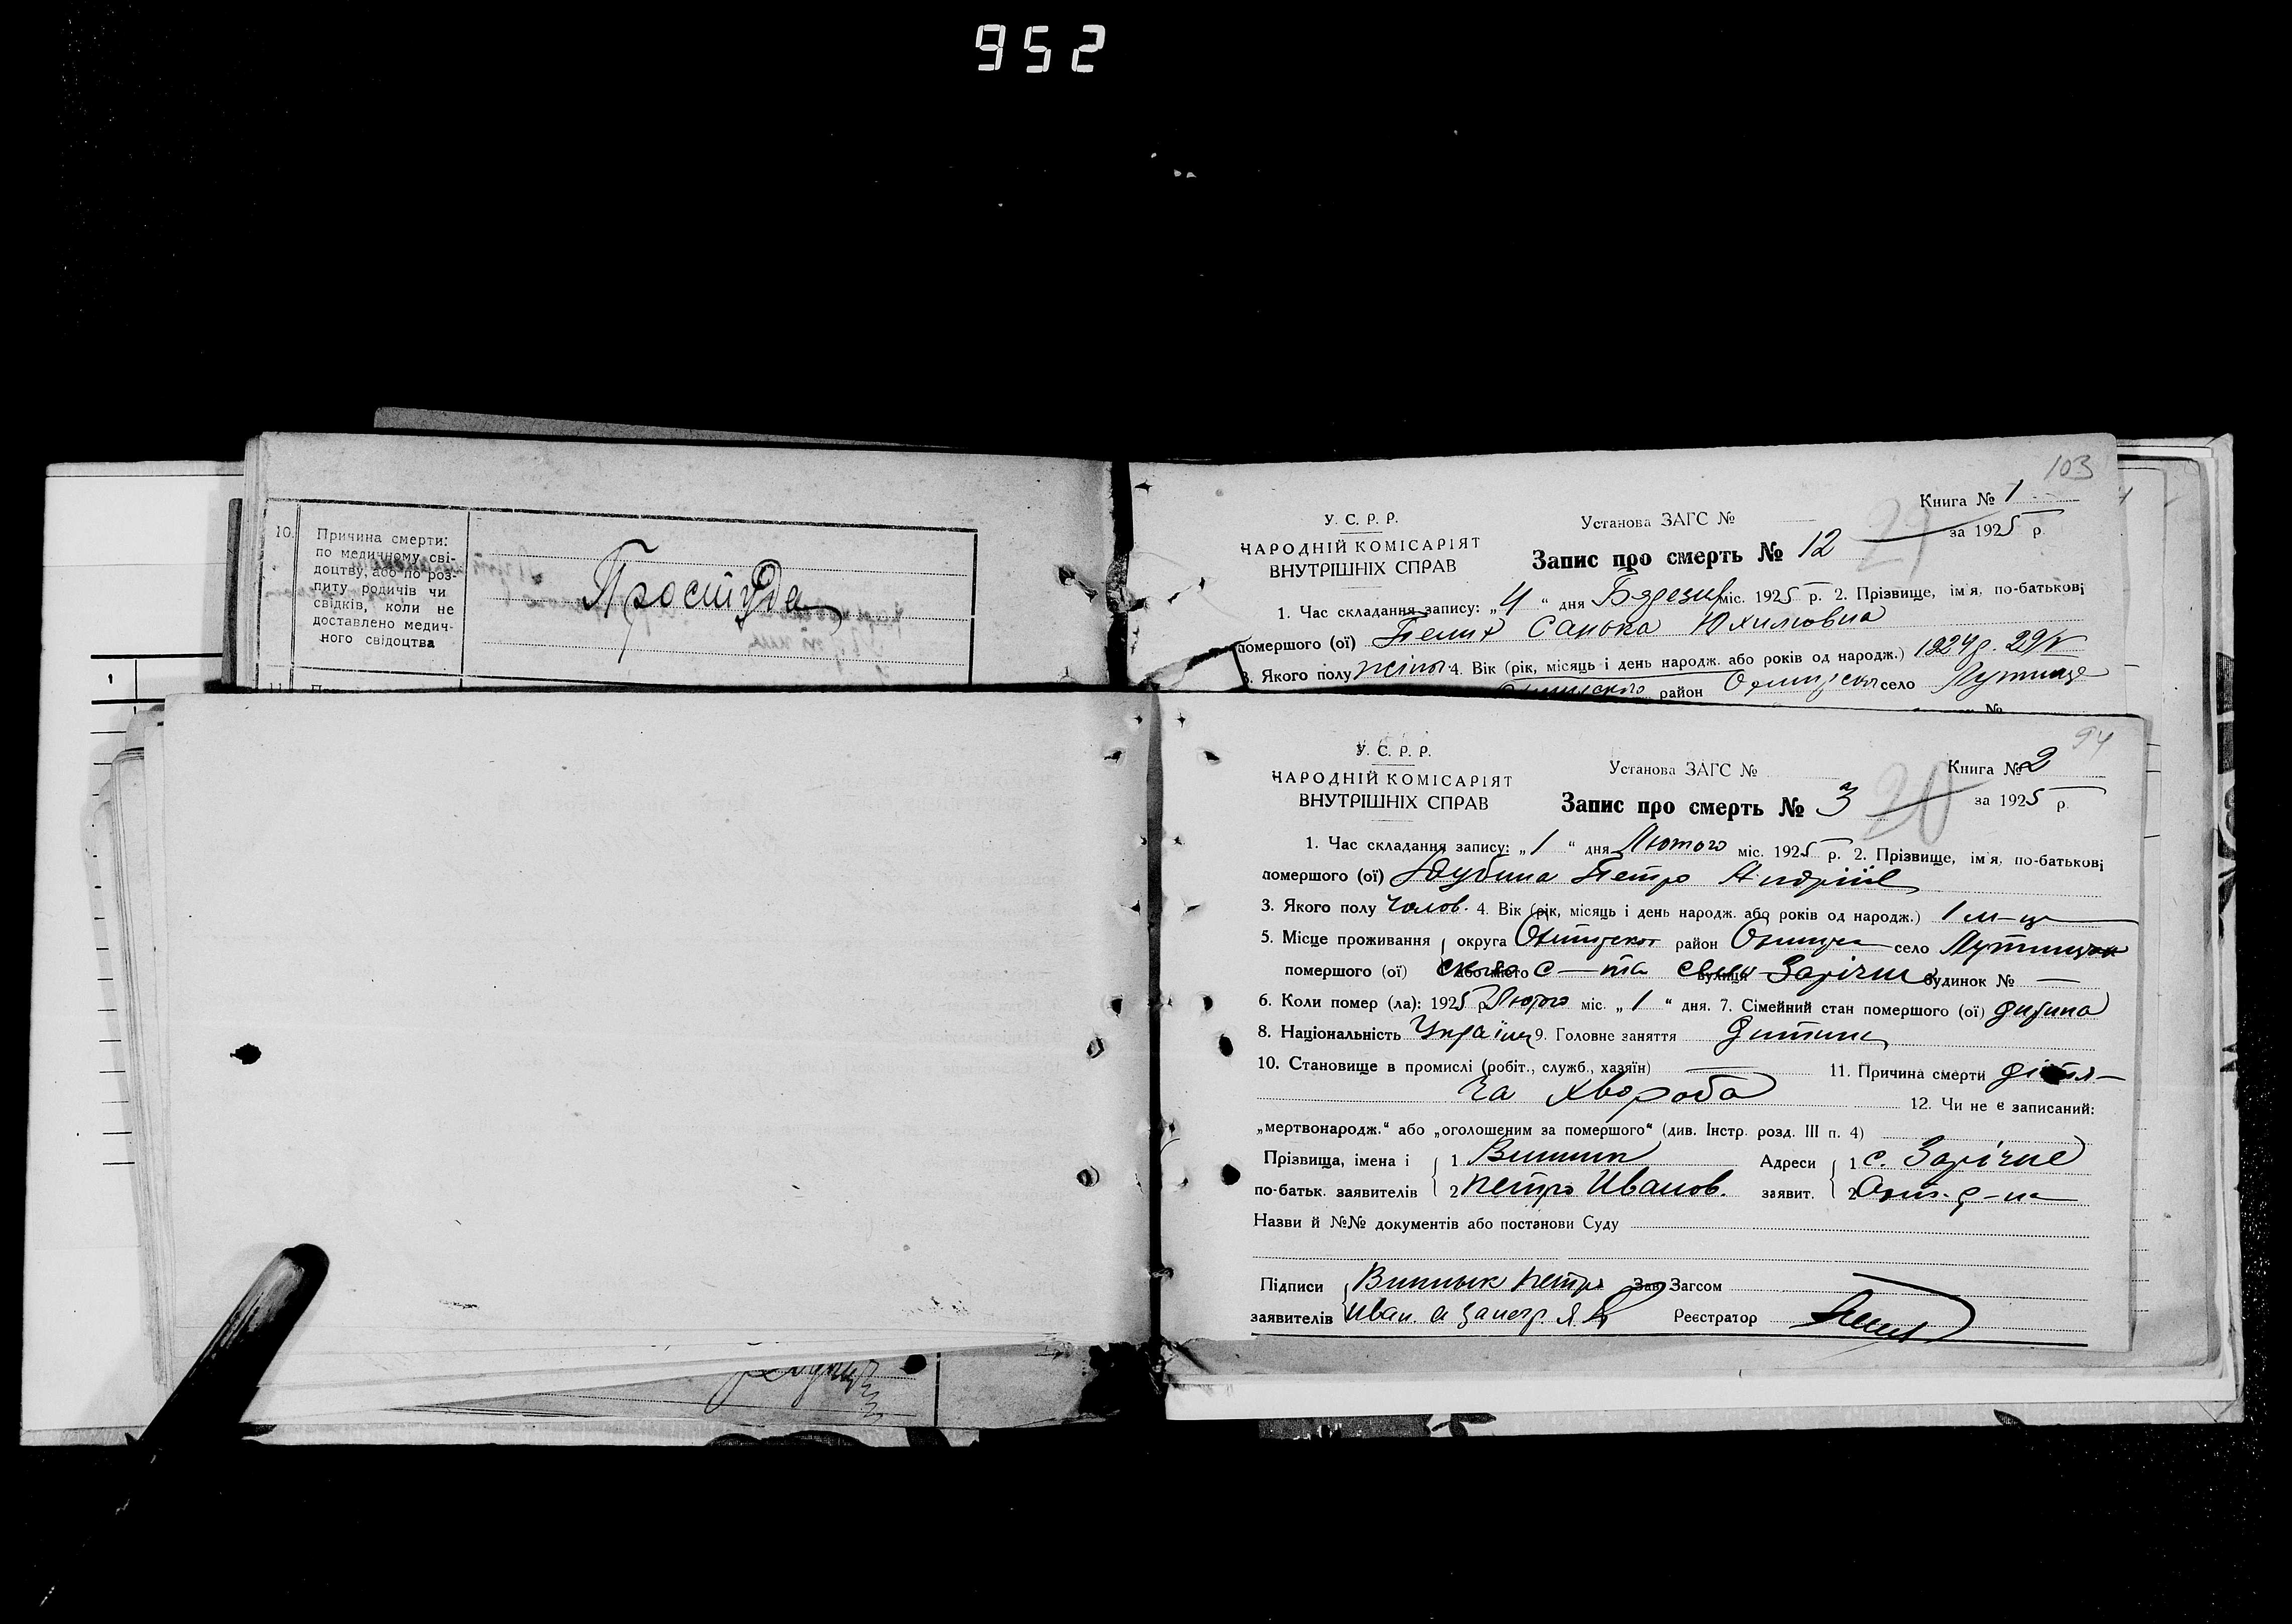 952
10.
Причина смерти:
по медичному сві-
доцтву, або по роз-
питу родичів чи
свідків, коли не
доставлено медич-
ного свідоцтва
Простуда
1
103
Книга № 1
У. С. Р. Р.
Установа ЗАГС №
за 1925 р.
НАРОДНІЙ КОМІСАРІЯТ
ВНУТРІШНІХ СПРАВ
Запис про смерть № 12
29
1. Час складання запису: „4“ дня міс. 1925 р. 2. Прізвище, ім'я, по-батькові
помершого (ої) Санька Юхимовна
3. Якого полу жіноч. 4. Вік (рік, місяць і день народж. або років од народж.) 1924 р. 29/V
район село
№
94
У. С. Р. Р.
Установа ЗАГС №
Книга № 2
НАРОДНІЙ КОМІСАРІЯТ
ВНУТРІШНІХ СПРАВ
Запис про смерть № 3
30
за 1925 р.
1. Час складання запису: „1“ дня Лютого міс. 1925 р. 2. Прізвище, ім'я, по-батькові
помершого (ої) Дубина Петро Андріїв
3. Якого полу чолов. 4. Вік (рік, місяць і день народж. або років од народж.) 1 м-ць
5. Місце проживання округа район село
помершого (ої) або місто с—та вулиця Зарічне будинок № —
6. Коли помер (ла): 1925 р. Лютого міс. „1“ дня. 7. Сімейний стан помершого (ої) дитина
8. Національність Українц 9. Головне заняття Дитина
10. Становище в промислі (робіт., служб., хазяїн) — 11. Причина смерти дітя-
ча хвороба 12. Чи не є записаний:
„мертвонародж.“ або „оголошеним за помершого“ (див. Інстр. розд. III п. 4)
Прізвища, імена і 1. Адреси 1 с. Зарічне
по-батьк. заявителів 2 Петро Иванов. заявит. 2 р-на
Назви й №№ документів або постанови Суду
Підписи Петро Зав. Загсом
заявителів Иван. Реєстратор